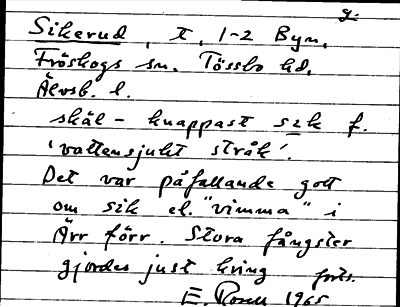 g.
Sikerud, I, 1-2 Byn,
Fröskogs sn. Tössbo hd,
Älvsb. l.
skäl - knappast sik f.
'vattensjukt stråk'.
Det var påfallande gott
om sik el. "vimma" i
Ärr förr. Stora fångster
gjordes just kring forts.
E. Rosell 1965